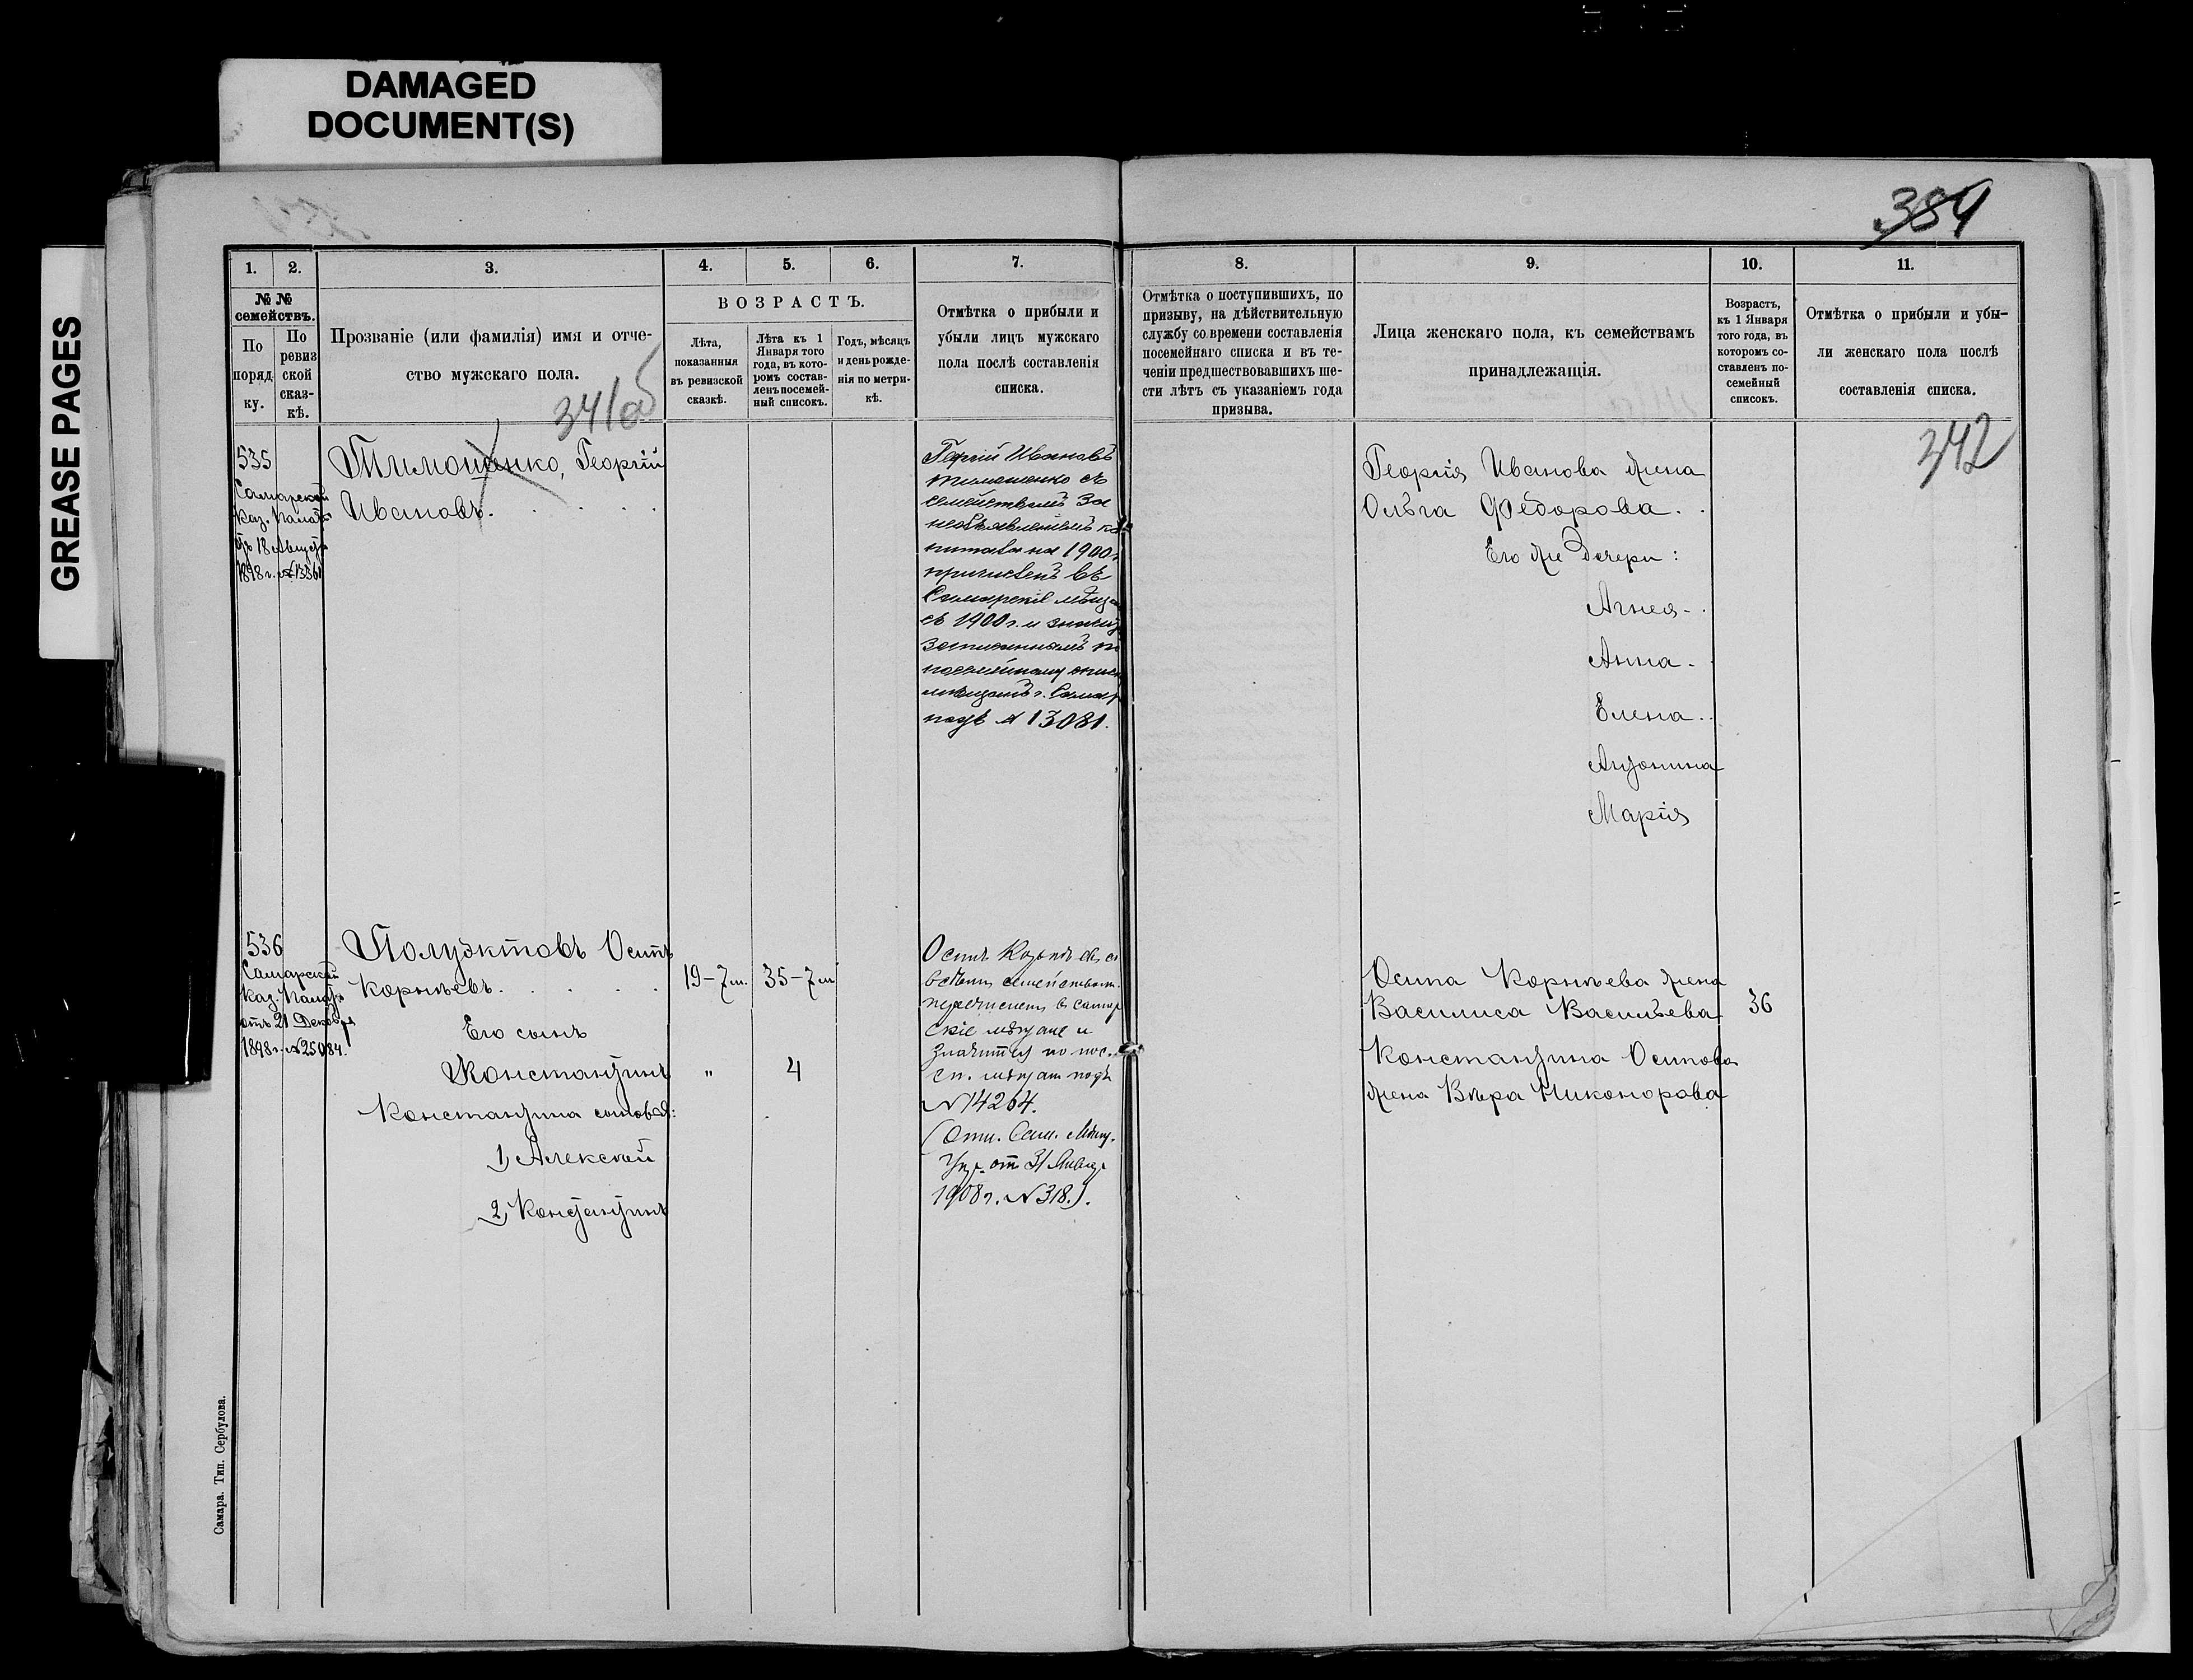 DAMAGED
DOCUMENT(S)
GREASE PAGES
384
1.
2.
3.
4.
5.
6.
7.
8.
9.
10.
11.
№ №
семействъ.
По
поряд
ку.
По
ревиз
ской
сказ-
кѣ.
Прозваніе (или фамилія) имя и отче-
ство мужскаго пола.
ВОЗРАСТЪ.
Лѣта,
показанныя
въ ревизской
сказкѣ.
Лѣта къ 1
Января того
года, въ кото-
ромъ состав-
ленъ посемей-
ный списокъ.
Годъ, мѣсяцъ
и день рожде-
нія по метри-
кѣ.
Отмѣтка о прибыли и
убыли лицъ мужскаго
пола послѣ составленія
списка.
Отмѣтка о поступившихъ, по
призыву, на дѣйствительную
службу со времени составленія
посемейнаго списка и въ те-
ченіи предшествовавшихъ ше-
сти лѣтъ съ указаніемъ года
призыва.
Лица женскаго пола, къ семействамъ
принадлежащія.
Возрастъ,
къ 1 Января
того года, въ
которомъ со-
ставленъ по-
семейный
списокъ.
Отмѣтка о прибыли и убы-
ли женскаго пола послѣ
составленія списка.
341об
342
535
Самарской
Каз. Палаты
отъ 18 Августа
1898 г. №13361
Тимошенко, Георгій
Ивановъ.
Георгій Ивановъ
Тимошенко съ
семействомъ за
необъявленіемъ ка
питала на 1900 г.
причисленъ въ
Самарскіе мѣща
съ 1900 г. и
записаннымъ по
посемейному списк
мѣщанъ г. Самар
подъ № 13081.
Георгія Иванова жена
Ольга Федорова.
Его же дочери:
Агнея
Анна
Елена
Антонина
Марія
536
Самарской
Каз. Палаты
отъ 21 Декабря
1898 г. №25084.
Полуэктовъ Осипъ
Корнѣевъ.
19-7 м.
35-7 м
Его сынъ
Константинъ
"
4
Константина сыновья:
1, Алексѣй
2, Константинъ
Осипъ
всѣмъ семействомъ
перечисленъ в самар
скіе мѣщане и
значится по пос.
сп. мѣщанъ подъ
№14264.
(Отн. Сам. Мѣщ.
Упр. отъ 31 Января
1908 г. №318.).
Осипа Корнѣева жена
Василиса Васильева
36
Константина Осипова
жена Вѣра Никонорова
Самара. Тип. Сербулова.